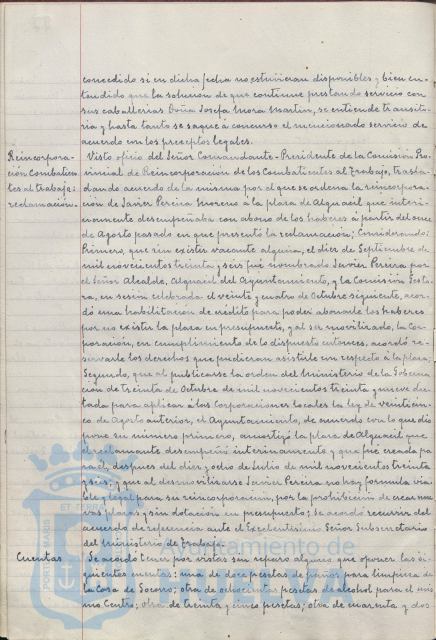 concedido si en dicha fecha no estuvieran disponibles y bien en-
tendido que la solucion de que continue prestando servicio con
sus caballerias Doña Josefa Mora Martin, se entiende transito-
ria y hasta tanto se saque á concurso el mencionado servicio de
acuerdo con los preceptos legales.
Reincorpora-
ción Combatien-
tes al trabajo:
reclamación.
Visto oficio del Señor Comandante-Presidente de la Comisión Pro-
vincial de Reincorporación de los Combatientes al trabajo, trasla-
dando acuerdo de la misma por el que se ordena la reincorpora-
ción de Javier Pereira Moreno á la plaza de Alguacil que interi-
namente desempeñaba con abono de los haberes á partir del once
de Agosto pasado en que presentó la reclamación; Considerando:
Primero, que sin existir vacante alguna, el diez de Septiembre de
mil novecientos treinta y seis fué nombrado Javier Pereira por
el Señor Alcalde, Alguacil del Ayuntamiento, y la Comisión Gesto-
ra, en sesión celebrada el veinte y cuatro de Octubre siguiente, acor-
dó una habilitación de crédito para poder abonarle los haberes
por no existir la plaza en presupuesto, y al ser movilizado, la Cor-
poración, en cumplimiento de lo dispuesto entonces, acordó re-
servarle los derechos que pudieran asistirle con respecto á la plaza;
Segundo, que al publicarse la orden del Ministerio de la Goberna-
ción de treinta de Octubre de mil novecientos treinta y nueve dic-
tada para aplicar á las Corporaciones locales la ley de veinticin-
co de Agosto anterior, el Ayuntamiento, de acuerdo con lo que dis-
pone su número primero, amortizó la plaza de Alguacil que
el reclamante desempeñó interinamente y que fué creada pa-
ra él, despues del diez y ocho de Julio de mil novecientos treinta
y seis; y que al desmovilizarse Javier Pereira no hay formula via-
ble y legal para su reincorporación, por la prohibición de crear nue-
vas plazas y sin dotación en presupuesto; Se acordó recurrir del
acuerdo de referencia ante el Excelentisimo Señor Subsecretario
del Ministerio de Trabajo.
Cuentas
Se acordó tener por vistas sin reparo alguno que oponer las si-
guientes cuentas: una de doce pesetas de paños para limpieza de
la Casa de Socorro; otra de ochocientas pesetas de alcohol para el mis-
mo Centro; otra de treinta y cinco pesetas; otra de cuarenta y dos
Ayuntamiento de